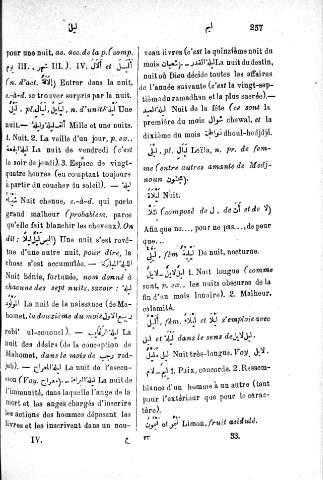 ليل
ليم
257
pour une nuit, ac. acc. de la p. (comp.
يوم III, شهر III). IV. أَلَالَ et أَلْيَلَ
(n. d'act. إليال) Entrer dans la nuit,
c.-à-d. se trouver surpris par la nuit.
لَيْل, pl. لَيَالِيل, n. d'unité لَيْلَة Une
nuit. — ألف ليلة وليلة Mille et une nuits.
1. Nuit. 2. La veille d'un jour, p. ex.,
ليلة الجمعة La nuit de vendredi (c'est
le soir de jeudi). 3. Espace de vingt-
quatre heures (en comptant toujours
à partir du coucher du soleil). —
Nuit chenue, c.-à-d. qui porte
grand malheur (probablem. parce
qu'elle fait blanchir les cheveux). On
dit: Une nuit s'est revê-
tue d'une autre nuit, pour dire, la
nuit s'est accumulée. —
Nuit bénie, fortunée, nom donné à
chacune des sept nuits, savoir:
La nuit de la naissance (de Ma-
homet, la douzième du mois ربيع الاول
rebi' ul-oouoel). — ليلة الرغائب La
nuit des désirs (de la conception de
Mahomet, dans le mois de رجب red-
jeb). — ليلة المعراج La nuit de l'ascen-
sion (Voy. معراج). — ليلة البراءة La nuit de
l'immunité, dans laquelle l'ange de la
mort et les anges chargés d'inscrire
les actions des hommes déposent les
livres et les inscrivent dans un nou-
IV.
veau livres (c'est la quinzième nuit du
mois شعبان). — ليلة القدر La nuit du destin,
nuit où Dieu décide toutes les affaires
de l'année suivante (c'est la vingt-sep-
tième du ramadhan et la plus sacrée) —
Nuit de la fête (ce sont la
première du mois شوال chewal, et la
dixième du mois ذو الحجة dhoul-hedjdjé.
ليلى, pl. ليال Leïla, n. pr. de fem-
me (entre autres amante de Medj-
noun مجنون).
لَيْلَاة Nuit.
لِئَلَّا (composé de لِ, de أن et de لا)
Afin que ne..., pour ne pas..., de peur
que...
لَيْلِيّ, fém. لَيْلِيَّة De nuit, nocturne.
لَيْل لَائِل 1. Nuit longue (comme
sont, p. ex., les nuits obscures de la
fin d'un mois lunaire). 2. Malheur,
calamité.
أَلْيَل, fém. لَيْلَاء et لَيْلَى s'emploie avec
لَيْل et لَيْلَة dans le sens de لائل.
مُلَيَّل Nuit très-longue. Voy. لائل.
لِيم — 1. Paix, concorde. 2. Ressem-
blance d'un homme à un autre (tant
pour l'extérieur que pour le carac-
tère).
لَيْمُون et لِيمُو Limon, fruit acidulé.
33.